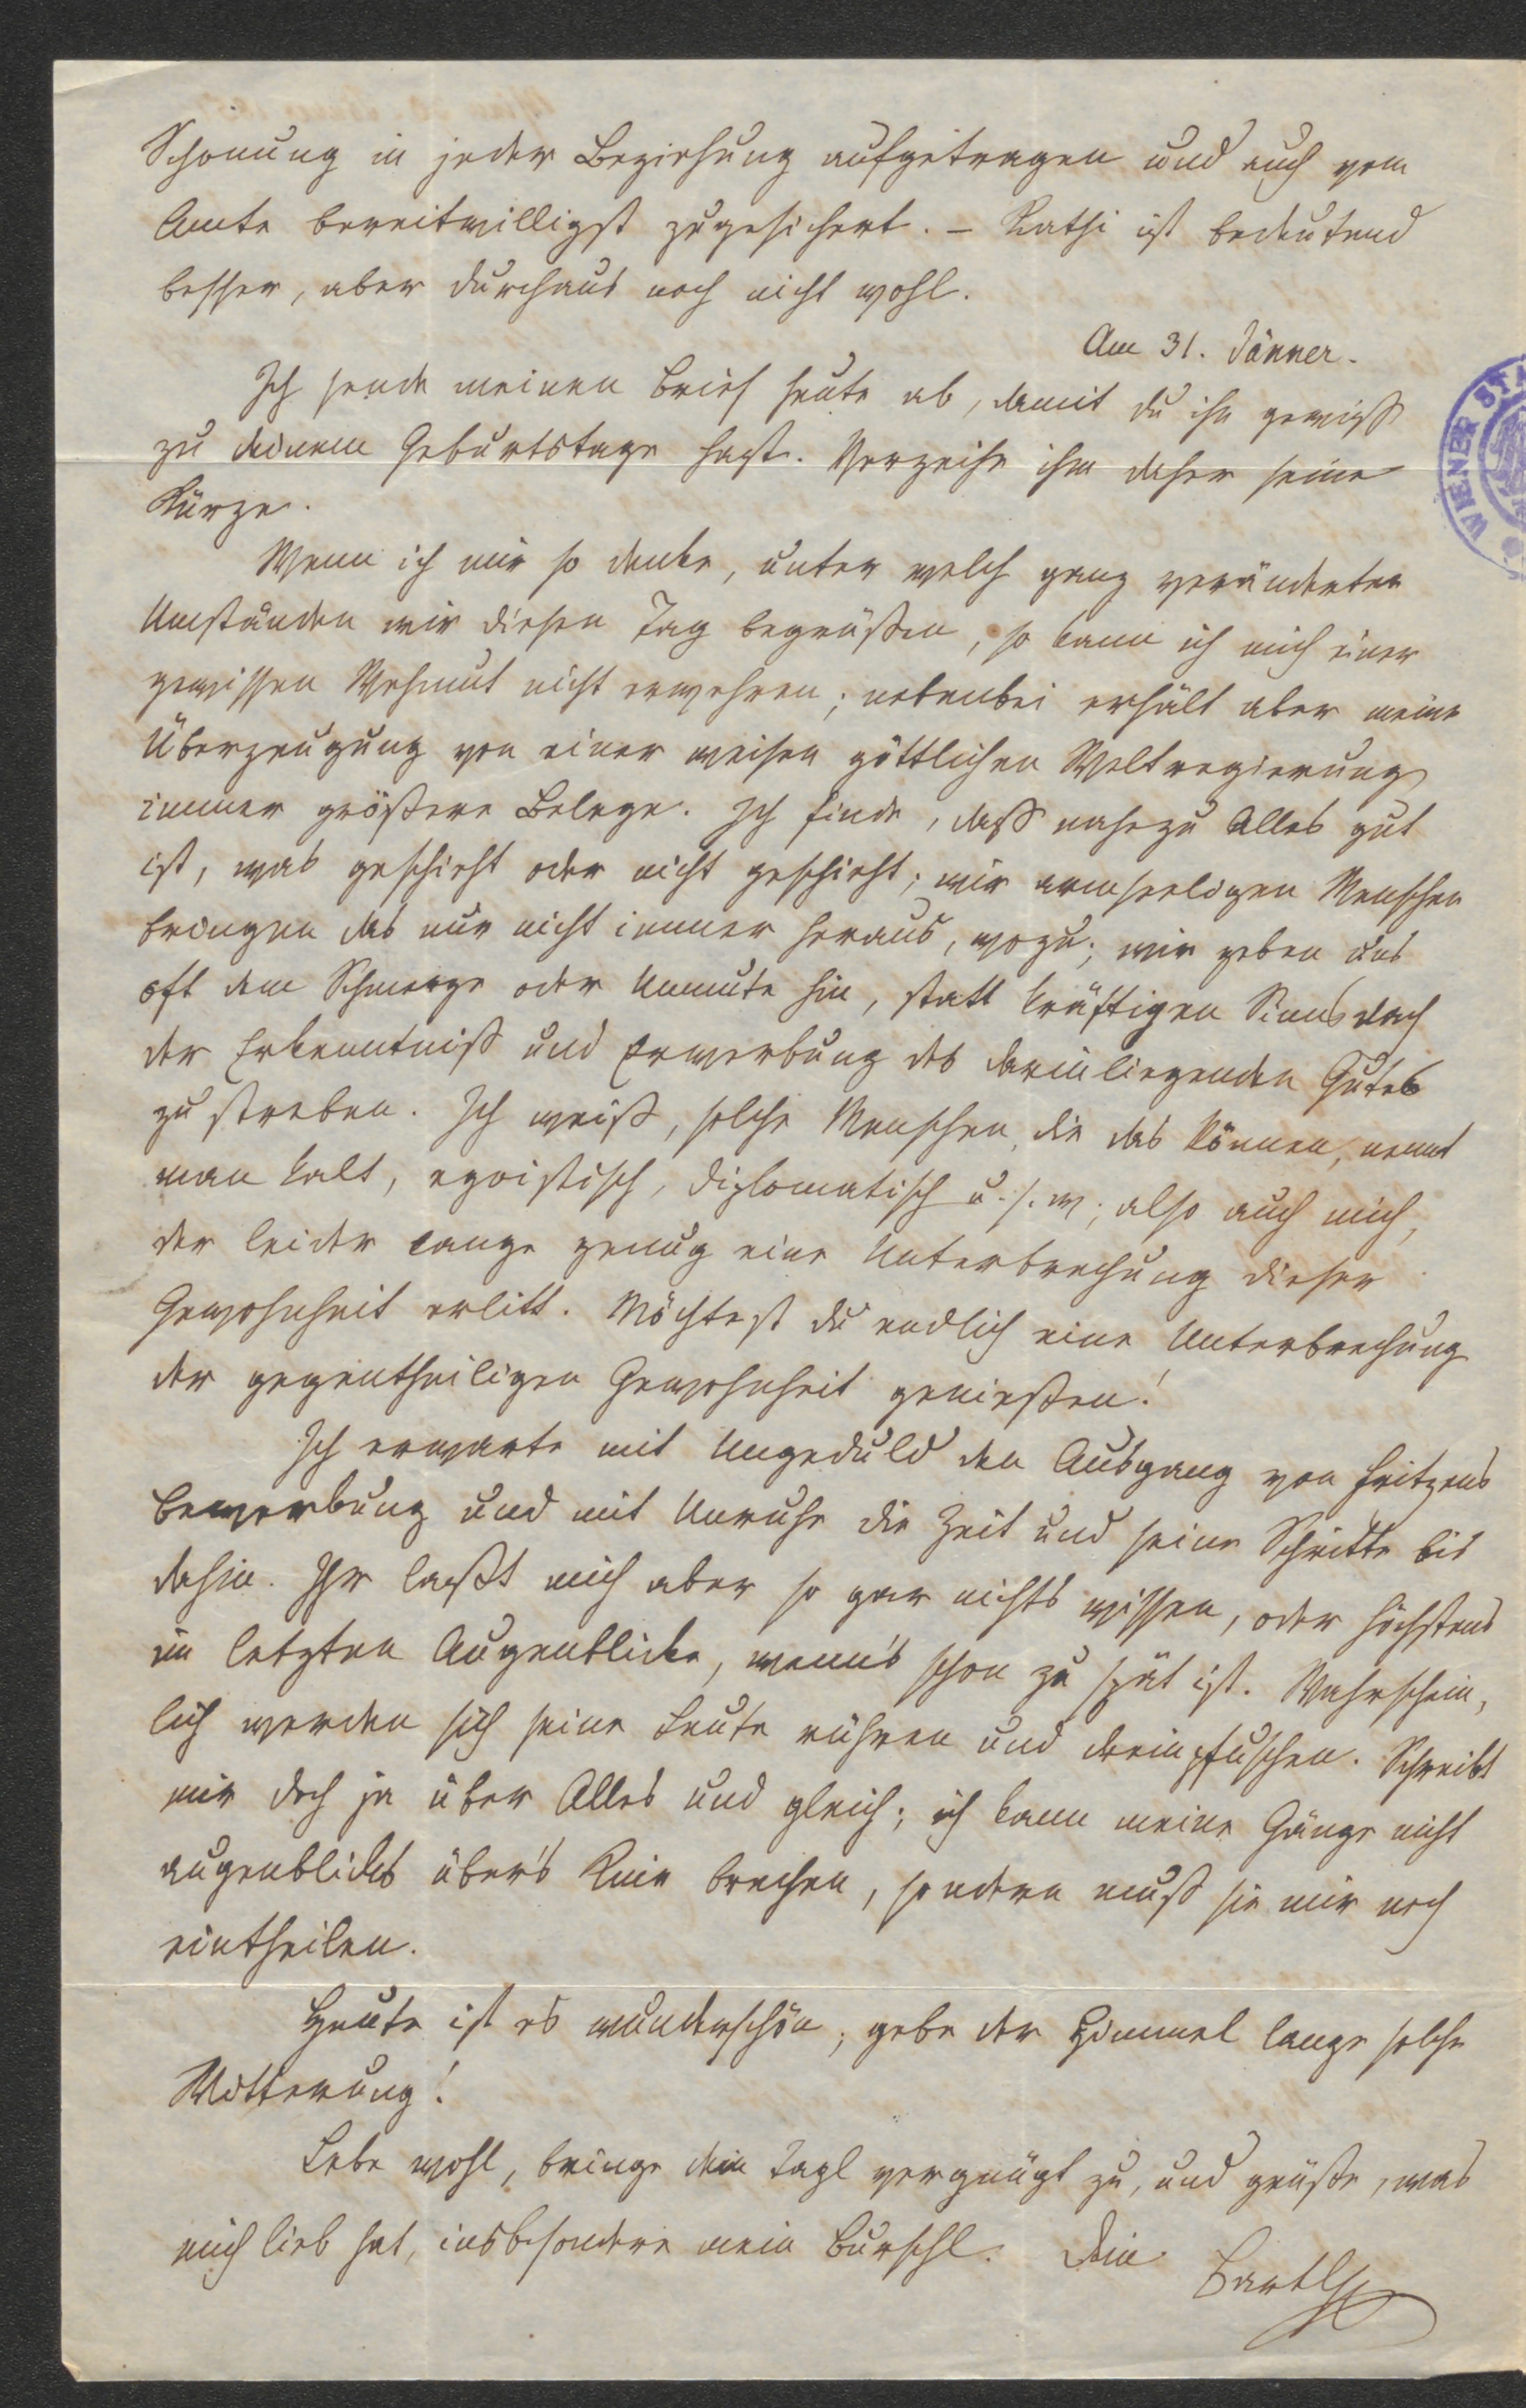 Schonung in jeder Beziehung aufgetragen und auch vom
Amte bereitwilligst zugesichert. – Kathi ist bedeutend
besser, aber durchaus noch nicht wohl.
Am 31. Jänner.
Ich sende meinen Brief heute ab, damit du ihn gewiß
zu deinem Geburtstage hast. Verzeihe ihm daher seine
Kürze.
Wenn ich mir so denke, unter welch ganz veränderten
Umständen wir diesen Tag begrüßen, so kann ich mich einer
gewissen Wehmut nicht erwehren; nebenbei erhält aber meine
Überzeugung von einer weisen göttlichen Weltregierung
immer größere Belege. Ich finde, daß nahezu Alles gut
ist, was geschieht oder nicht geschieht; wir armseeligen Menschen
bringen das nur nicht immer heraus, wozu; wir geben uns
oft dem Schmerze oder Unmute hin, statt kräftigen Sinns nach
der Erkenntniß und Erwerbung des darinliegenden Gutes
zu streben. Ich weiß, solche Menschen, die das können, nennt
man kalt, egoistisch, diplomatisch u. s. w.; also auch mich,
der leider lange genug eine Unterbrechung dieser
Gewohnheit erlitt. Möchtest du endlich eine Unterbrechung
der gegentheiligen Gewohnheit genießen!
Ich erwarte mit Ungeduld den Ausgang von Fritzens
Bewerbung und mit Unruhe die Zeit und seine Schritte bis
dahin. Ihr laßt mich aber so gar nichts wissen, oder höchstens
im letzten Augenblicke, wenn's schon zu spät ist. Wahrschein-
lich werden sich seine Leute rühren und dreinpfuschen. Schreibt
mir doch ja über Alles und gleich; ich kann meine Gänge nicht
augenblicks über's Knie brechen, sondern muß sie mir noch
eintheilen.
Heute ist es wunderschön; gebe der Himmel lange solche
Witterung!
Lebe wohl, bringe dein Tagl vergnügt zu, und grüße, was
mich lieb hat, insbesondere mein Burschl. Dein
Bartl
WIENER STA